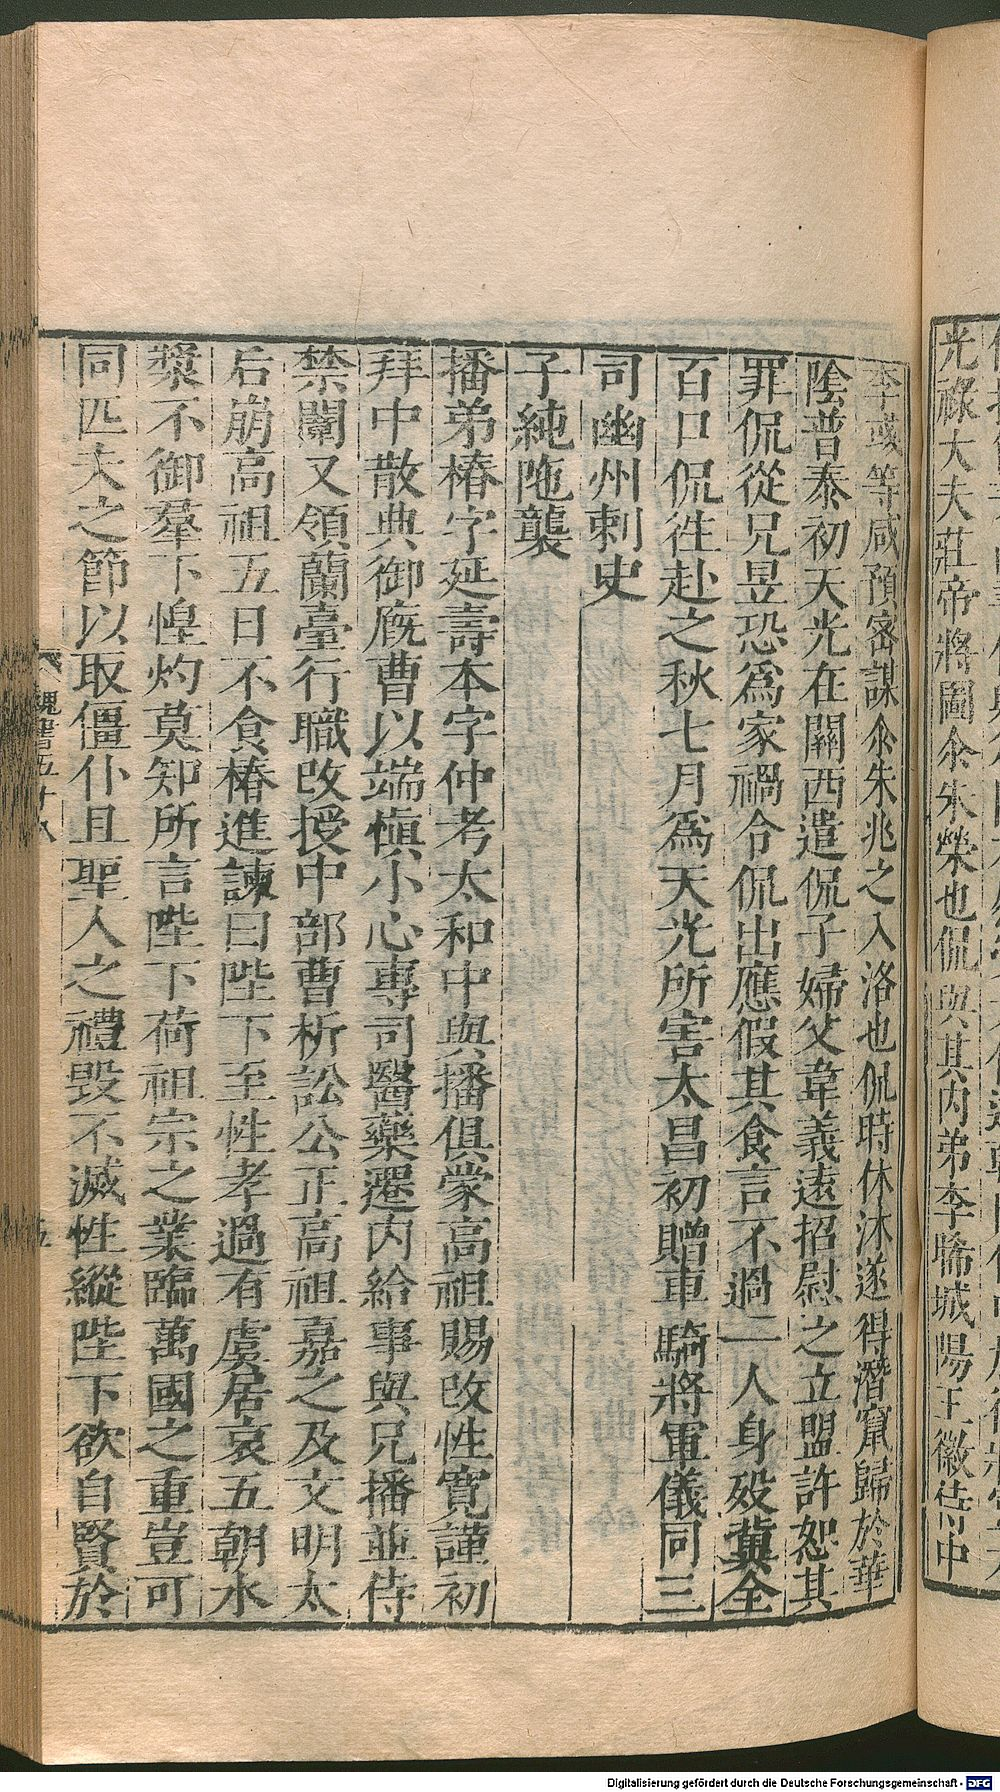 光祿大夫莊帝將圖尒朱榮也侃與其内弟李晞城陽王徽侍中
李彧等咸預密謀尒朱兆之入洛也侃時休沐遂得潛竄歸於華
陰普泰初天光在關西遣侃子婦父韋義遠招慰之立盟許恕其
罪侃從兄昱恐爲家禍令侃出應假其食言不過一人身殁冀全
百口侃往赴之秋七月爲天光所害太昌初贈車騎將軍儀同三
司幽州刺史
子純陁襲
播弟椿字延壽本字仲考太和中與播俱蒙高祖賜改性寛謹初
拜中散典御廐曹以端愼小心專司醫藥遷内給事與兄播並侍
禁闈又領蘭臺行職改授中部曹析訟公正高祖嘉之及文明太
后崩高祖五日不食椿進諫曰陛下至性孝過有虞居哀五朝水
漿不御羣下惶灼莫知所言陛下荷祖宗之業臨萬國之重豈可
同匹夫之節以取僵仆且聖人之禮毀不滅性縱陛下欲自賢於
魏書五十八
五
Digitalisierung gefördert durch die Deutsche Forschungsgemeinschaft - DFG